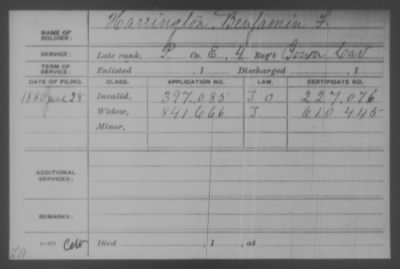 NAME OF SOLDIER: Harrington, Benjamin F.
SERVICE: Late rank, P. Co. E, 4 Reg't Iowa Cav
TERM OF SERVICE: Enlisted , 1 Discharged , 1
DATE OF FILING. CLASS. APPLICATION NO. LAW. CERTIFICATE NO.
1880 June 28 Invalid, 397.085 J O 227.076
Widow, 841.666 J 610.445
Minor,
ADDITIONAL SERVICES:
REMARKS:
Died , 1 , at